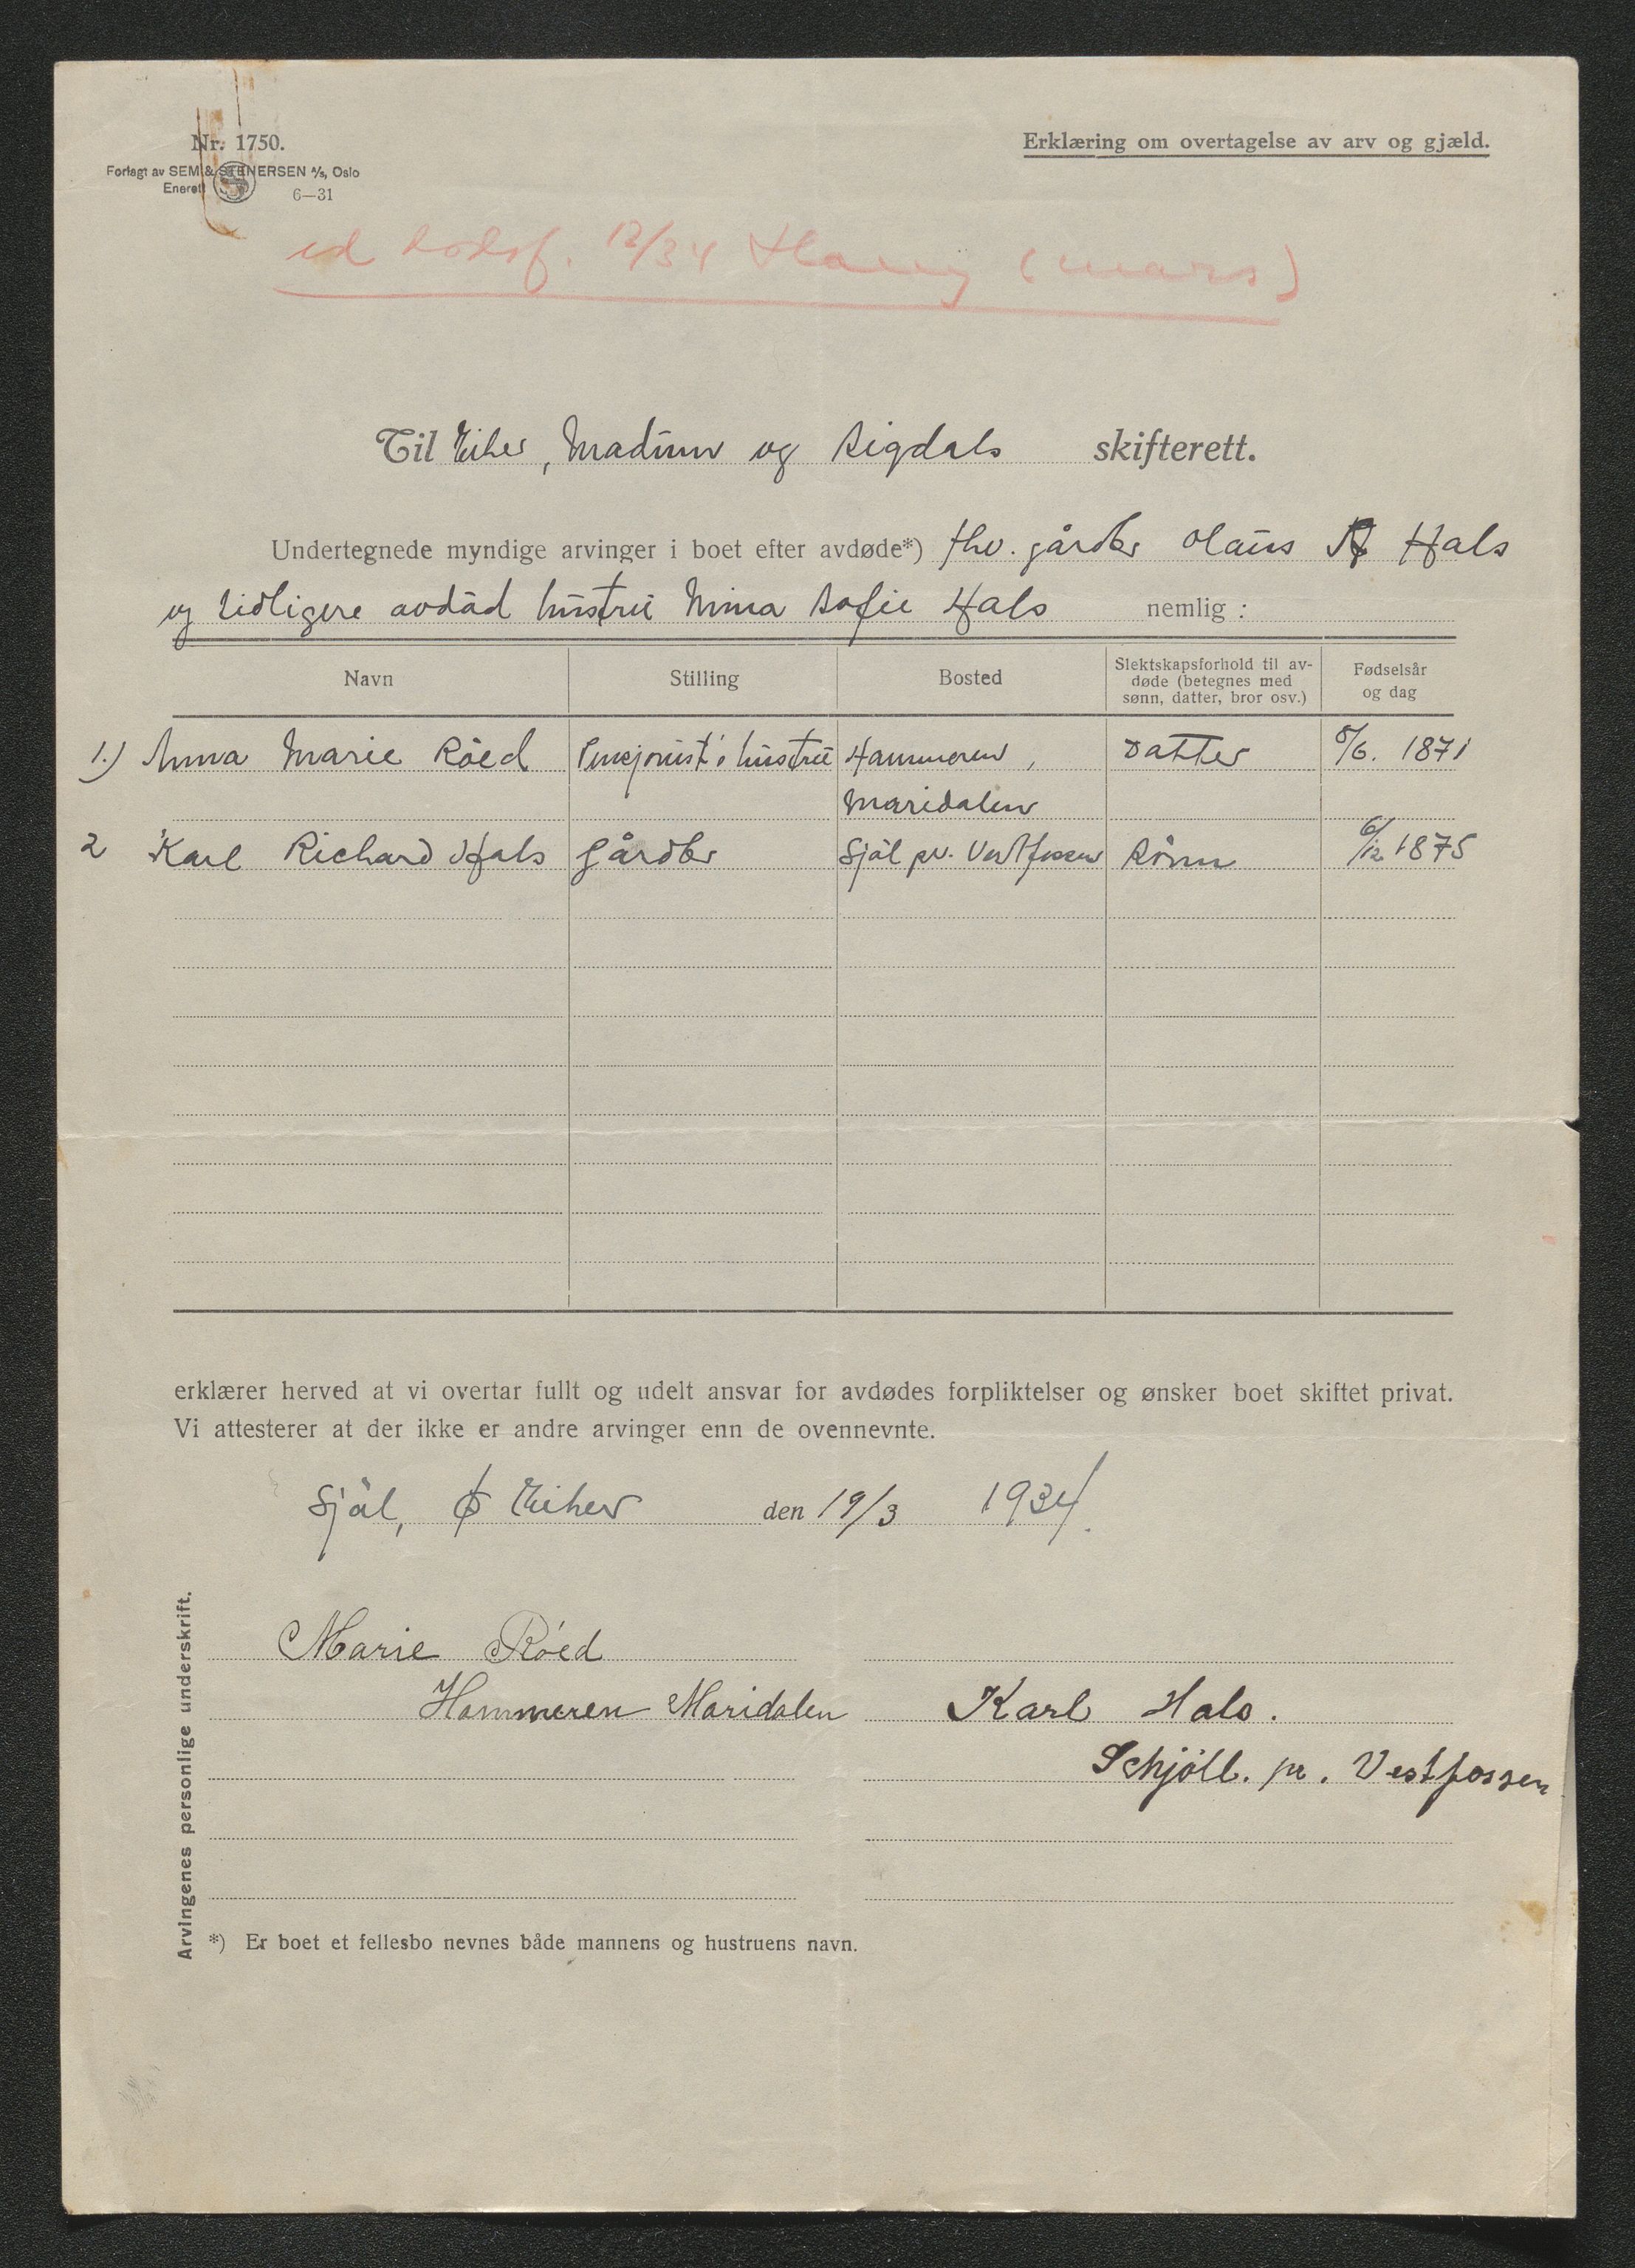 Nr. 1750.
Forlagt av SEM & STENERSEN A/s, Oslo
Enerett 6—31
Erklæring om overtagelse av arv og gjæld.
12/34 (mars)
Til Eiker, Modum og Sigdals skifterett.
Undertegnede myndige arvinger i boet efter avdøde*) fhv. gårdbr Olaus A Hals
og tidligere avdød hustru Mina Sofie Hals nemlig :
Navn Stilling Bosted Slektskapsforhold til av-døde (betegnes med sønn, datter, bror osv.) Fødselsår og dag
1.) Anna Marie Röed Pensjonist's hustru Hammeren, Datter 5/6. 1871
Maridalen
2 Karl Richard Hals Gårdbr Sjöl pr. Vestfossen Sönn 6/12 1875
erklærer herved at vi overtar fullt og udelt ansvar for avdødes forpliktelser og ønsker boet skiftet privat.
Vi attesterer at der ikke er andre arvinger enn de ovennevnte.
Sjöl, Ø Eiker den 19/3 1934.
Arvingenes personlige underskrift.
Marie Röed
Hammeren Maridalen
Karl Hals.
Schjöll. pr. Vestfossen
*) Er boet et fellesbo nevnes både mannens og hustruens navn.